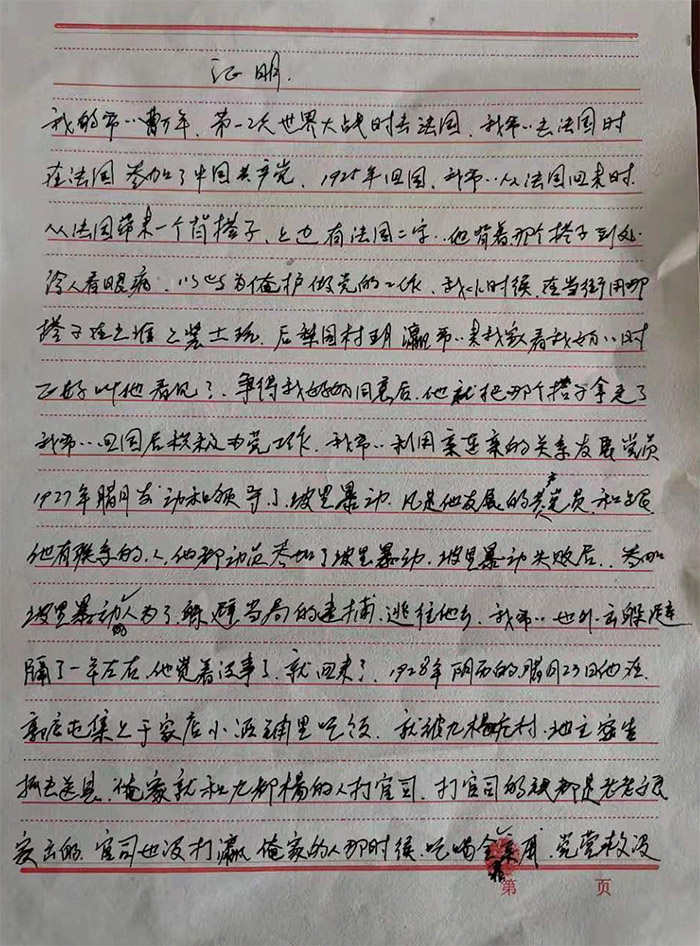 证明.
我的爷〃曹万年，第一次世界大战时去法国，我爷〃去法国时
在法国参加了中国共产党，1925年回国，我爷〃从法国回来时
从法国带来一个背搭子，上边有法国二字，他背着那个搭子到处
给人看眼病，以此为掩护做党的工作，我小时候，在当街用那
搭子在土堆上装土玩，后梨园村 爷〃来我家看我奶〃时
正好叫他看见了，争得我奶奶同意后，他就把那个搭子拿走了
我爷〃回国后积极为党工作，我爷〃利用亲连亲的关系发展党员
1927年腊月发动和领导了坡里暴动，凡是他发展的共产党员，和跟
他有联系的人，他都动员参加了坡里暴动，坡里暴动失败后，参加
坡里暴动的人为了躲避当局的逮捕，逃往他乡，我爷〃也外出躲避
隔了一年左右，他觉着没事了，就回来了，1928年阴历的腊月23日他在
郭店屯集上于家店小酒铺里吃饭，就被九 杨庄村，地主
抓去送县，俺家就和九都杨的人打官司，打官司的钱都是老老
出的，官司也没打赢，俺家的人那时候，吃喝全 ，党
第 页